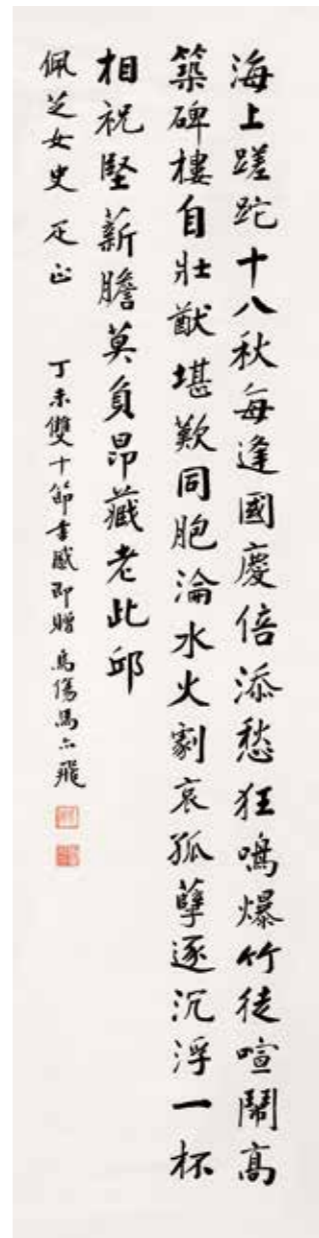 海上蹉跎十八秋每逢國慶倍添愁狂鳴爆竹徒喧鬧高
築碑樓自壯猷堪歎同胞淪水火劇哀孤孽逐沉浮一杯
相祝堅薪膽莫負昂藏老此邱
佩芝女史 疋正 丁未雙十節書感即贈 烏傷馬六飛